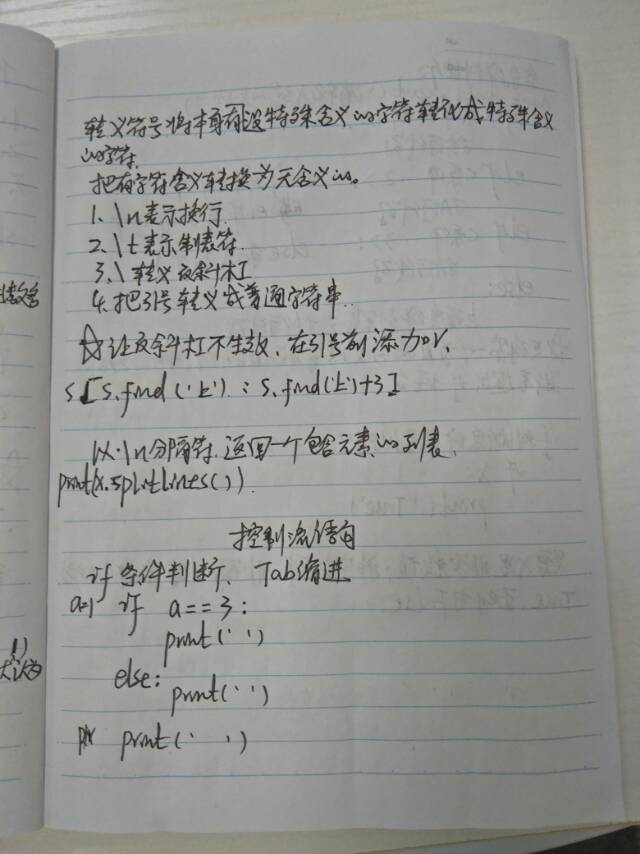 转义符号将本身有没特殊含义的字符转化成特殊含义
的字符.
把有字符含义转换为无含义的。
1. \n表示换行.
2. \t表示制表符.
3. \ 转义反斜杠
4. 把引号转义成普通字符串.
☆让反斜杠不生效、在引号前添加r、
S[S.find('上') : S.find('上')+3]
以·\n分隔符.返回一个包含元素的列表.
print(x.splitlines()).
控制流语句
if 条件判断、 Tab缩进
a=1 if a==3:
print(' ')
else:
print(' ')
print(' ')